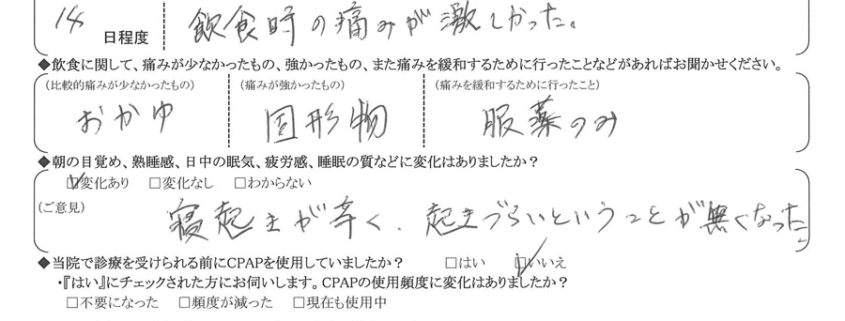 14 日程度 飲食時の痛みが激しかった。
◆飲食に関して、痛みが少なかったもの、強かったもの、また痛みを緩和するために行ったことなどがあればお聞かせください。
(比較的痛みが少なかったもの) (痛みが強かったもの) (痛みを緩和するために行ったこと)
おかゆ 固形物 服薬のみ
◆朝の目覚め、熟睡感、日中の眠気、疲労感、睡眠の質などに変化はありましたか？
☑変化あり □変化なし □わからない
(ご意見) 寝起きが辛く、起きづらいということが無くなった。
◆当院で診療を受けられる前にCPAPを使用していましたか？ □はい ☑いいえ
・『はい』にチェックされた方にお伺いします。CPAPの使用頻度に変化はありましたか？
□不要になった □頻度が減った □現在も使用中